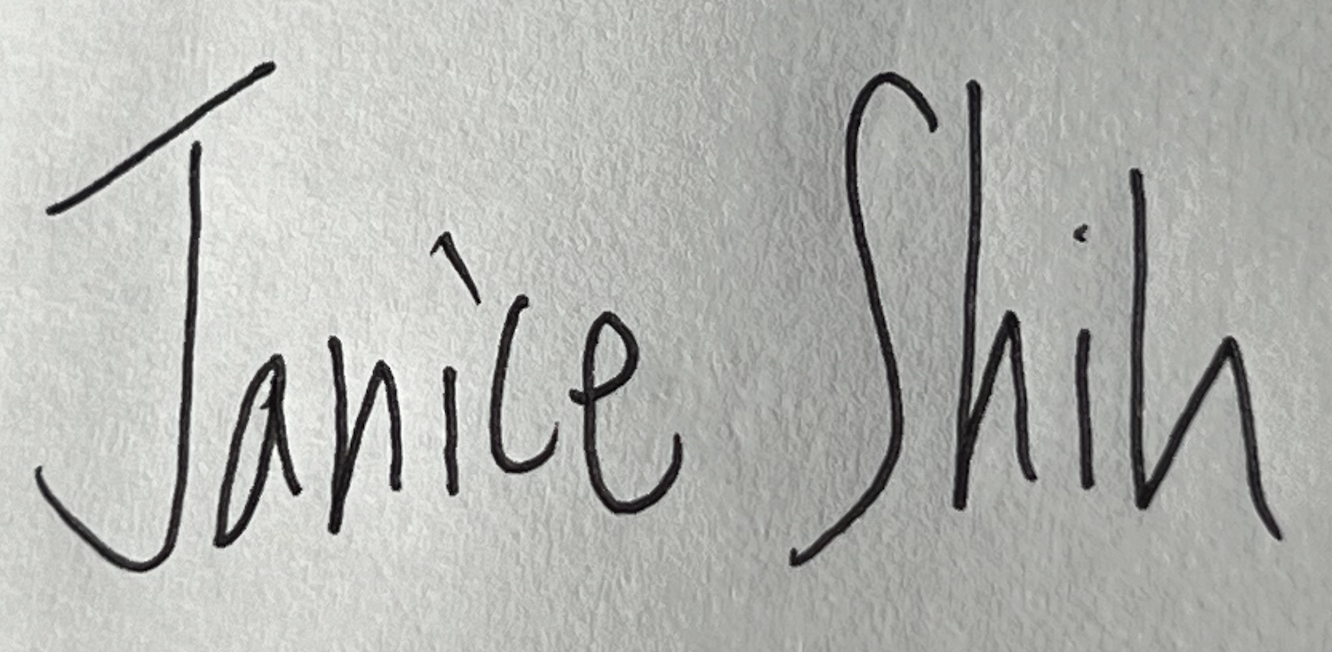 Janice Shih